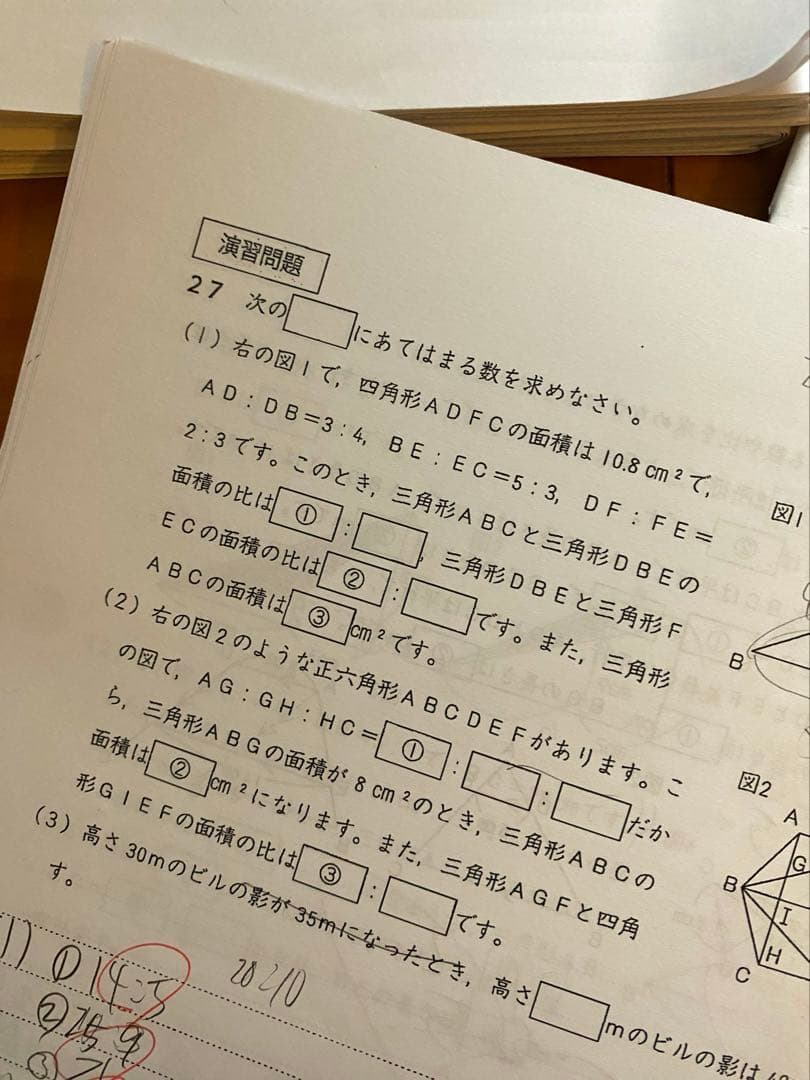 演習問題
27 次の□にあてはまる数を求めなさい。
(1) 右の図1で，四角形ADFCの面積は10.8cm²で，
AD：DB＝3：4，BE：EC＝5：3，DF：FE＝
2：3です。このとき，三角形ABCと三角形DBEの
面積の比は①：□，三角形DBEと三角形F
ECの面積の比は②：□です。また，三角形
ABCの面積は③cm²です。
(2) 右の図2のような正六角形ABCDEFがあります。こ
の図で，AG：GH：HC＝①：□：□だか
ら，三角形ABGの面積が8cm²のとき，三角形ABCの
面積は②cm²になります。また，三角形AGFと四角
形GIEFの面積の比は③：□です。
(3) 高さ30mのビルの影が35mになったとき，高さ□mのビルの影は
す。
図1
B
図2
A
G
B
I
H
C
1) ① 14:5
20 210
② 25 9
③ 21